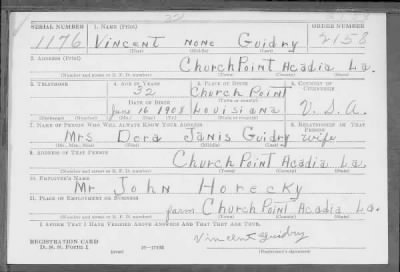 SERIAL NUMBER 1. NAME (Print) ORDER NUMBER
1176 Vincent none Guidry 2158
(First) (Middle) (Last)
2. ADDRESS (Print)
Church Point Acadia La.
(Number and street or R. F. D. number) (Town) (County) (State)
3. TELEPHONE 4. AGE IN YEARS 5. PLACE OF BIRTH 6. COUNTRY OF CITIZENSHIP
32 Church Point
DATE OF BIRTH (Town or county)
June 16 1908 Louisiana U.S.A.
(Exchange) (Number) (Mo.) (Day) (Yr.) (State or country)
7. NAME OF PERSON WHO WILL ALWAYS KNOW YOUR ADDRESS 8. RELATIONSHIP OF THAT PERSON
Mrs Dora Janis Guidry wife
(Mr., Mrs., Miss) (First) (Middle) (Last)
9. ADDRESS OF THAT PERSON
Church Point Acadia La.
(Number and street or R. F. D. number) (Town) (County) (State)
10. EMPLOYER'S NAME
Mr. John Horecky
11. PLACE OF EMPLOYMENT OR BUSINESS
farm Church Point Acadia La.
(Number and street or R. F. D. number) (Town) (County) (State)
I AFFIRM THAT I HAVE VERIFIED ABOVE ANSWERS AND THAT THEY ARE TRUE.
REGISTRATION CARD
D. S. S. Form 1 (over) Vincent Guidry
(Registrant's signature)